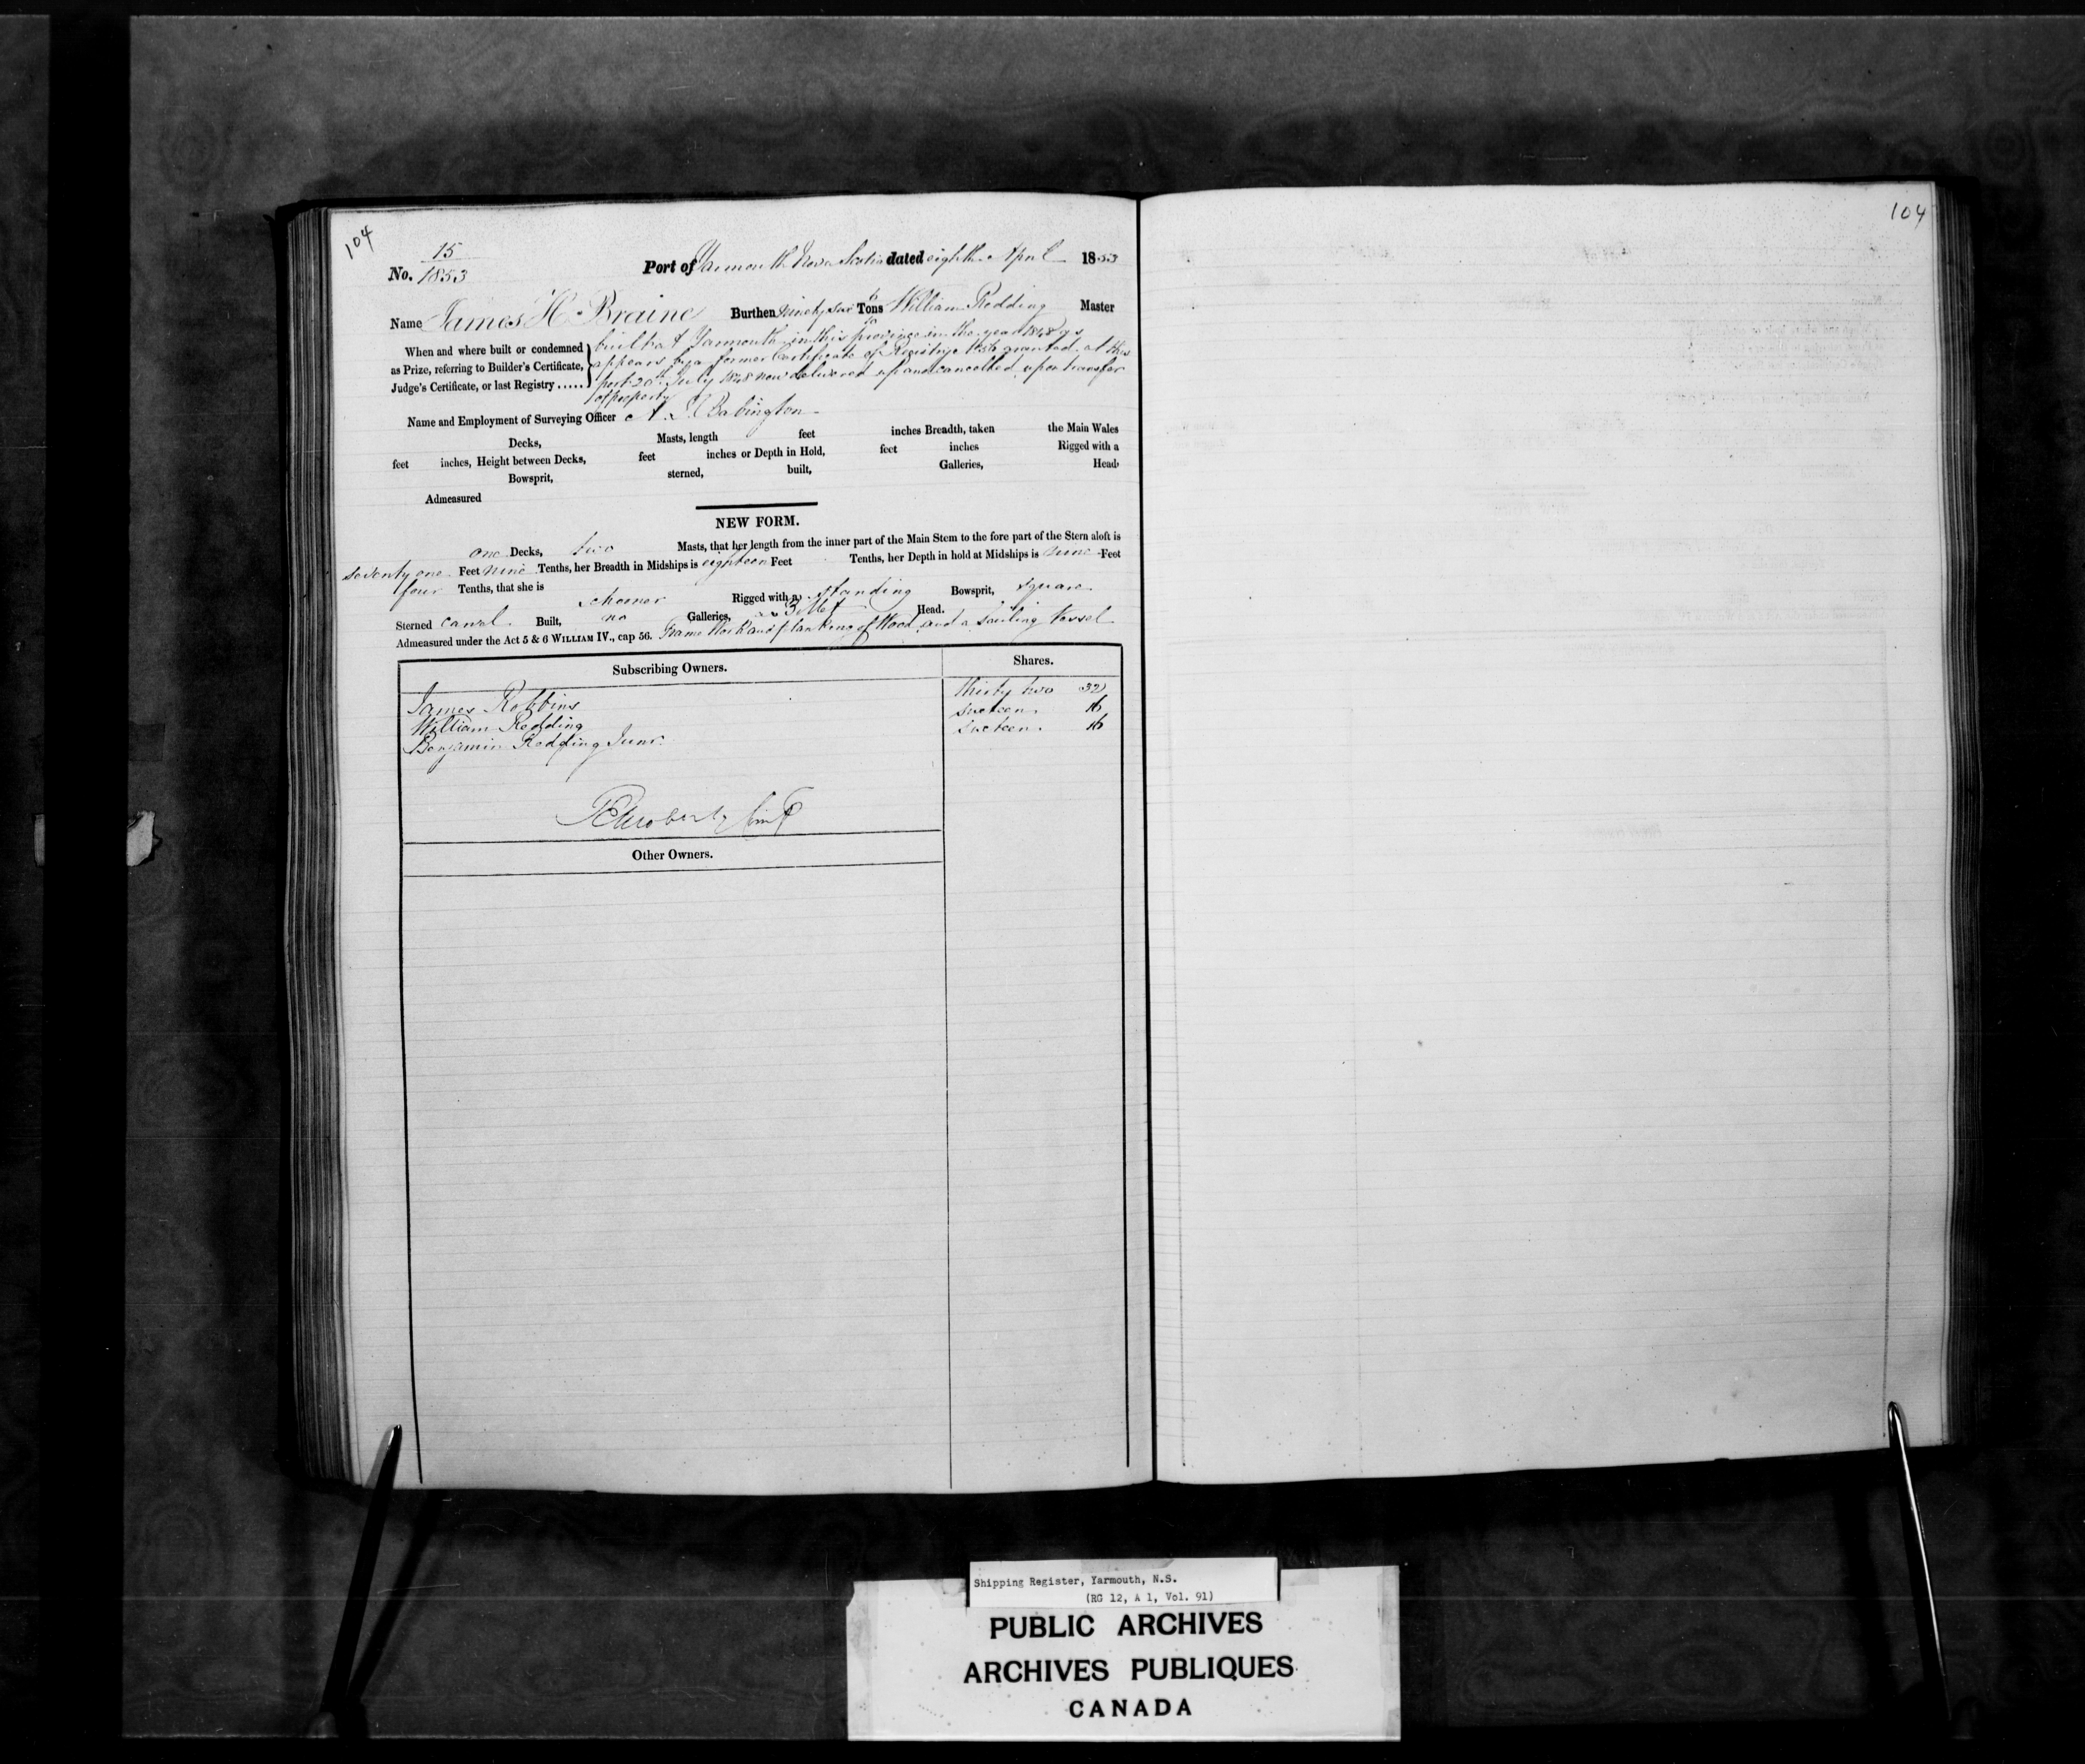 104
104
15
No. 1853
Port of Yarmouth Nova Scotia dated eighth April 1853
Name James H Braine Burthen Ninety six Tons William Redding Master
When and where built or condemned as Prize, referring to Builder's Certificate, Judge's Certificate, or last Registry .....
built at Yarmouth in this province in the year 1848 as
appears by a former Certificate of Registry granted at this
port 20th July 1848 now delivered up and cancelled upon transfer
of property
Name and Employment of Surveying Officer A. Babington
Decks, Masts, length feet inches Breadth, taken the Main Wales
feet inches, Height between Decks, feet inches or Depth in Hold, feet inches Rigged with a
Bowsprit, sterned, built, Galleries, Head
Admeasured
NEW FORM.
one Decks, two Masts, that her length from the inner part of the Main Stem to the fore part of the Stern aloft is
seventy one Feet nine Tenths, her Breadth in Midships is eighteen Feet Tenths, her Depth in hold at Midships is nine Feet
four Tenths, that she is schooner Rigged with a standing Bowsprit, square
Sterned carvel Built, no Galleries, Billet Head.
Admeasured under the Act 5 & 6 WILLIAM IV., cap 56. Frame Work and planking of Wood and a Sailing Vessel
Subscribing Owners. Shares.
James Robbins thirty two 32
William Redding sixteen 16
Benjamin Redding Junr. sixteen 16
Other Owners.
Shipping Register, Yarmouth, N.S.
(RG 12, A 1, Vol. 91)
PUBLIC ARCHIVES
ARCHIVES PUBLIQUES
CANADA